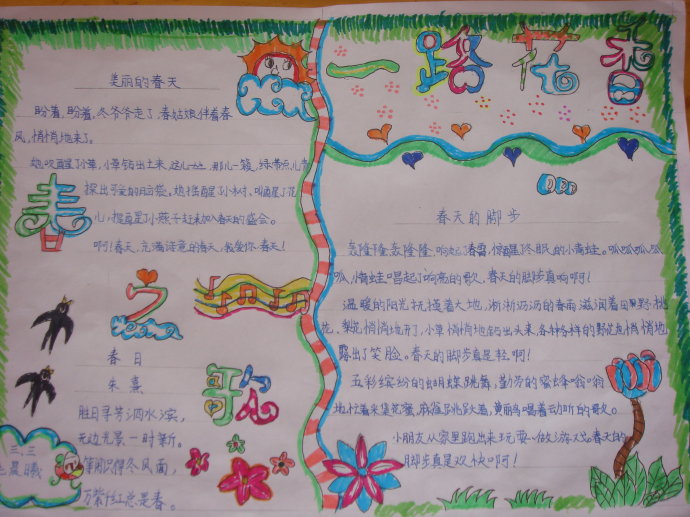 美丽的春天
盼着,盼着,冬爷爷走了,春姑娘伴着春
风,悄悄地来了。
她吹醒了小草,小草钻出土来,这儿一丛,那儿一颗,绿带点儿黄
探出可爱的脑袋。她摇醒了小树、叫醒了花
儿,提醒了小燕子赶来加入春天的盛会。
啊!春天,充满诗意的春天,我爱你,春天!
春
之
歌
春日
朱熹
胜日寻芳泗水滨,
无边光景一时新。
等闲识得冬风面,
万紫千红总是春。
三、三
晨曦
一路花香
春天的脚步
轰隆隆,轰隆隆,响起了春雷,惊醒了冬眠的小青蛙。呱呱呱,呱
呱,小青蛙唱起了响亮的歌。春天的脚步真响啊!
温暖的阳光抚摸着大地,淅淅沥沥的春雨滋润着田野,桃
花、梨花悄悄地开了,小草悄悄地钻出头来,各种各样的野花也悄悄地
露出了笑脸。春天的脚步真是轻啊!
五彩缤纷的蝴蝶跳舞,勤劳的蜜蜂嗡嗡
地忙着采集花蜜,麻雀蹦跳着,黄鹂鸟唱着动听的歌。
小朋友从家里跑出来玩耍、做游戏。春天的
脚步真是欢快啊!